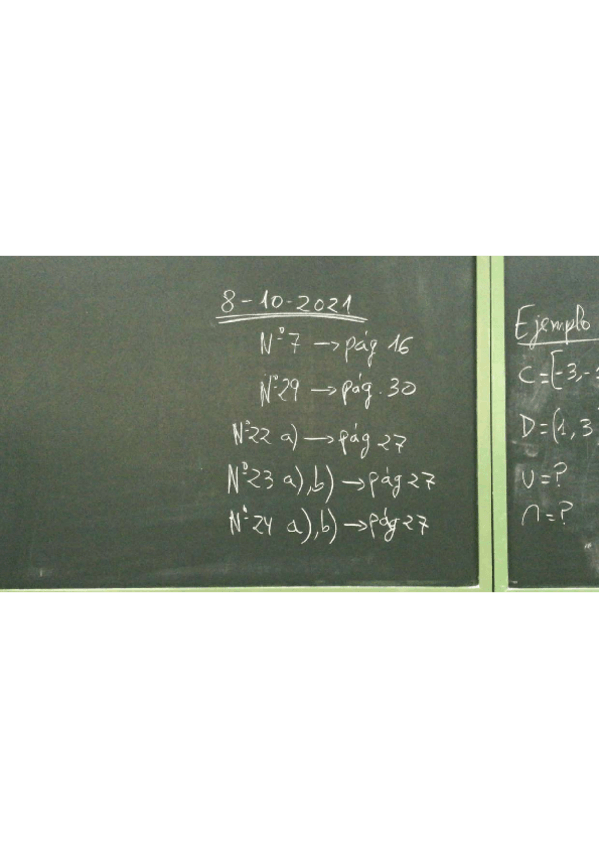 8-10-2021
Nº7 → pág 16
Nº29 → pág. 30
Nº22 a) → pág 27
Nº23 a), b) → pág 27
Nº24 a), b) → pág 27
Ejemplo
C=[-3,-
D=(1,3
∪=?
∩=?